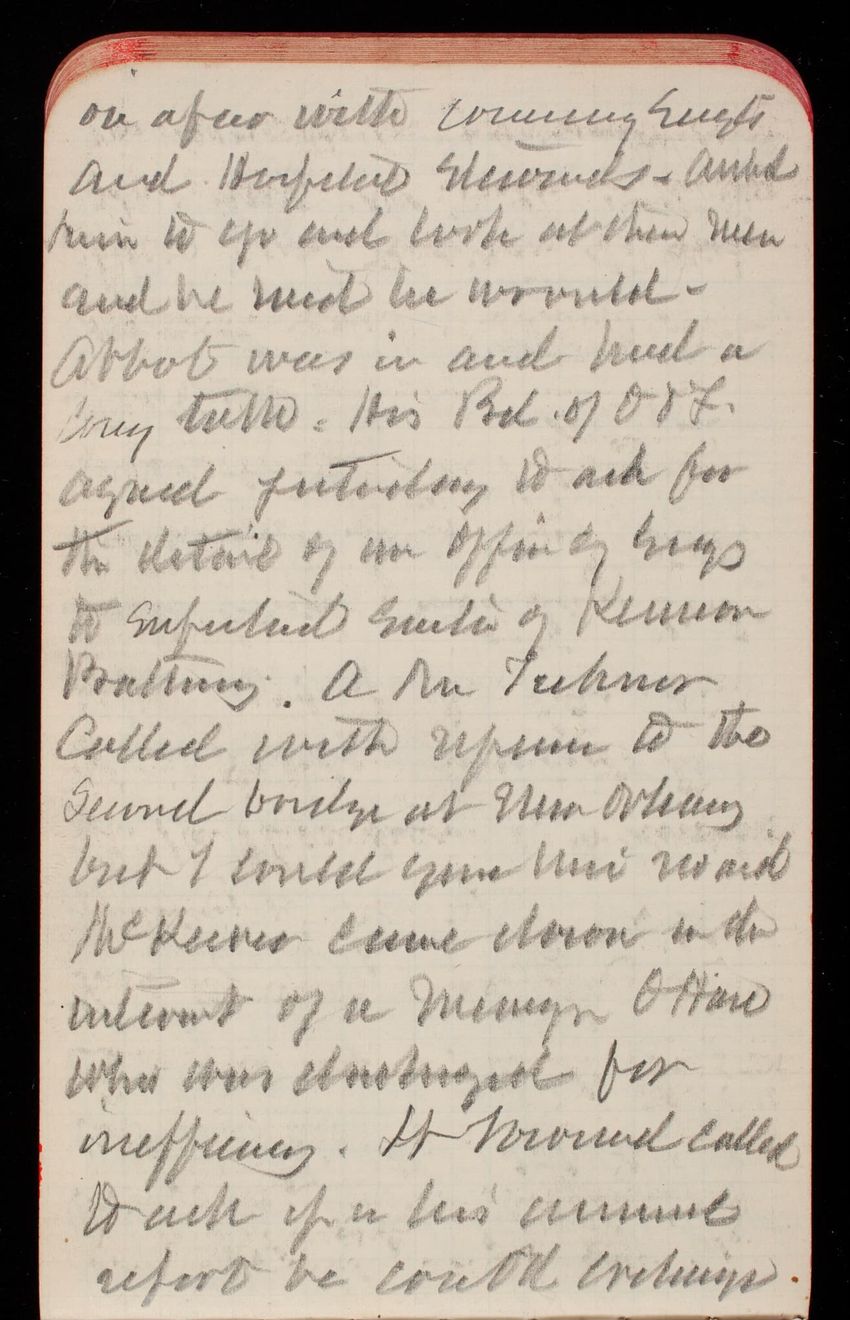 on after with Commy Sergts
and Hospital Stewards - asked
him to go and look at their men
and he said he would -
Abbot was in and had a
long talk. His Bd. of O & F.
agreed yesterday to ask for
the detail of an Officer of Engs
to
Battery. A Mr
Called with reference to the
Second bridge at New Orleans
but I could give him no aid
McKeever came down in the
interest of a Messenger O'Hare
who was discharged for
inefficiency. Lt Townsend called
to ask if in his annual
report he could